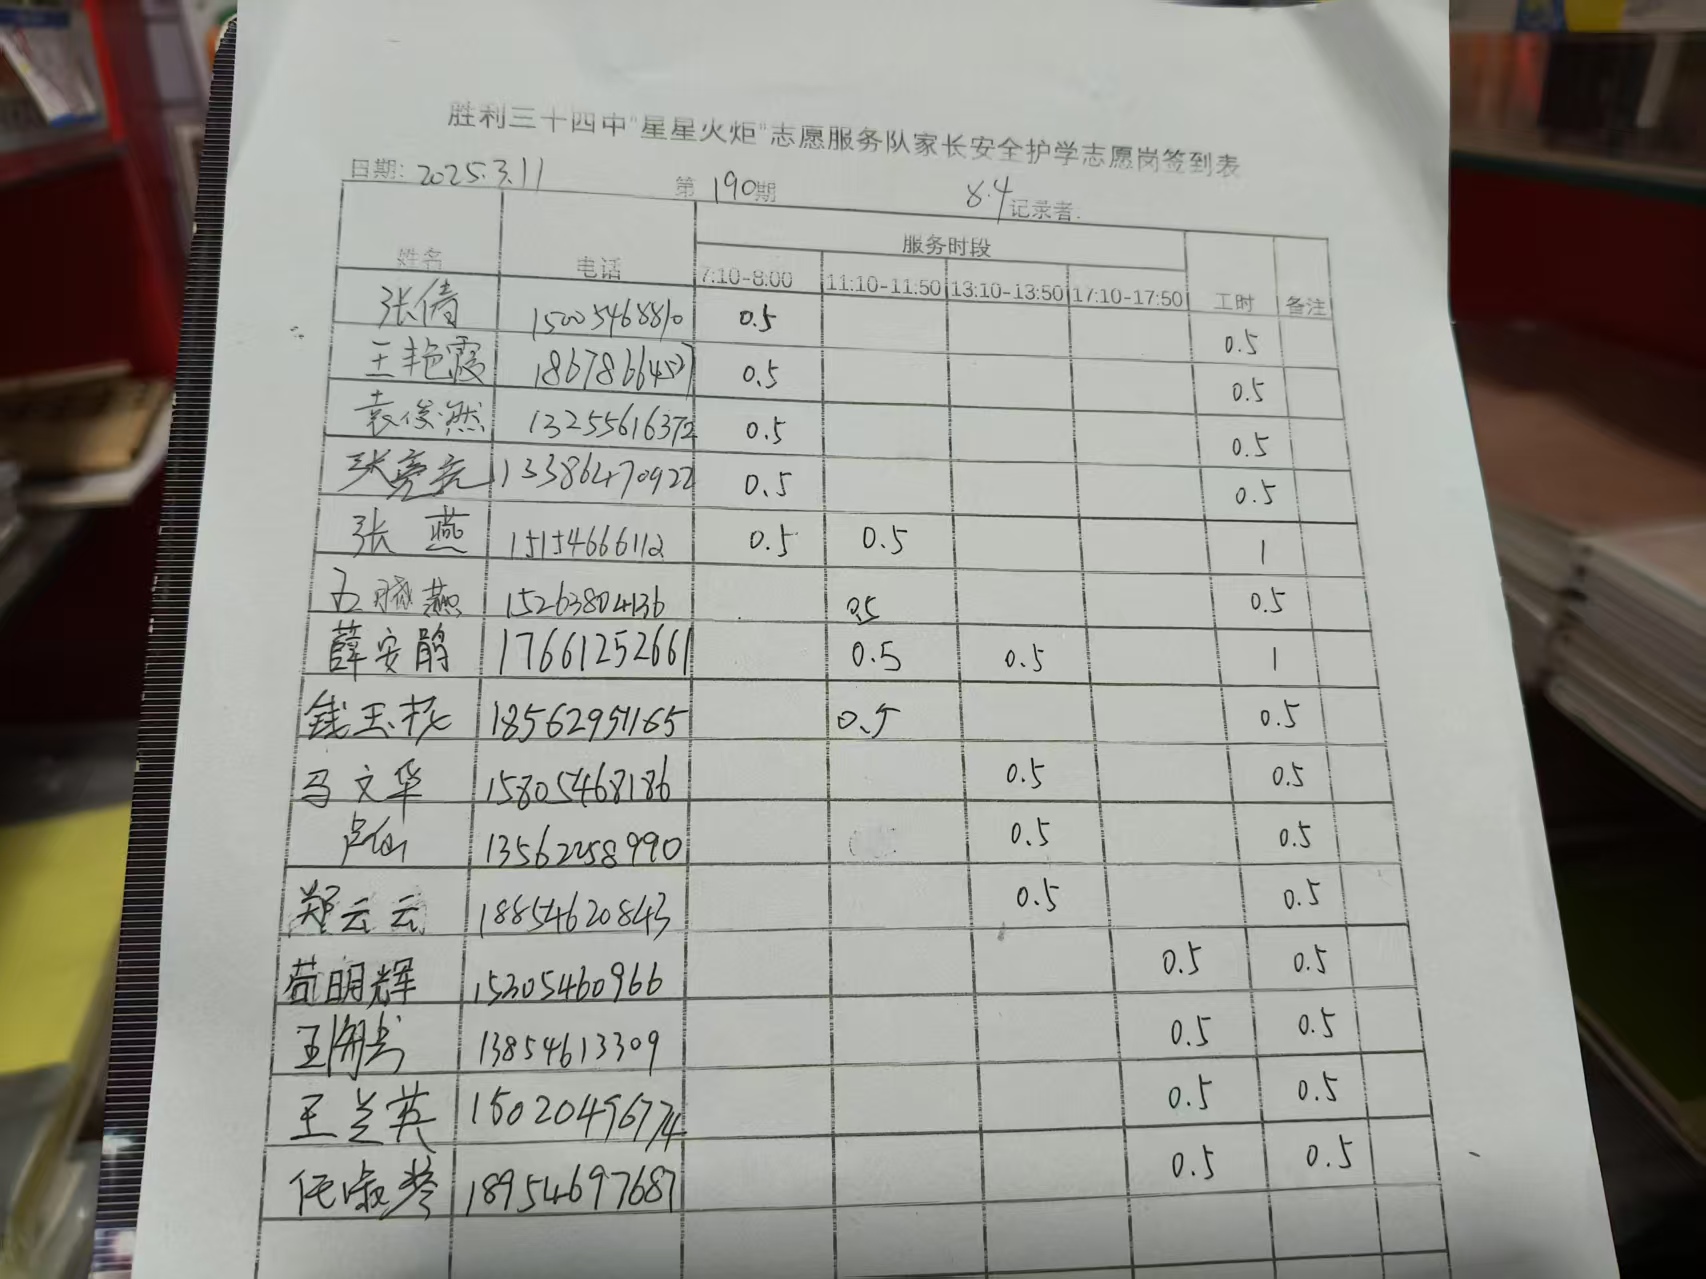 胜利三十四中"星星火炬"志愿服务队家长安全护学志愿岗签到表
日期: 2025.3.11 第 190期 8.4 记录者:
姓名 电话 服务时段 工时 备注
7:10-8:00 11:10-11:50 13:10-13:50 17:10-17:50
张倩 15005468810 0.5 0.5
王艳霞 18678664527 0.5 0.5
袁俊然 13255616372 0.5 0.5
张亮亮 13386470922 0.5 0.5
张燕 15154666112 0.5 0.5 1
15263804136 0.5 0.5
薛安鹃 17661252661 0.5 0.5 1
钱玉 18562951165 0.5 0.5
马文华 15805468186 0.5 0.5
卢仙 13562258990 0.5 0.5
郑云云 18854620843 0.5 0.5
苟明辉 15305460966 0.5 0.5
王 13854613309 0.5 0.5
王兰英 15020496774 0.5 0.5
任淑 18954697687 0.5 0.5